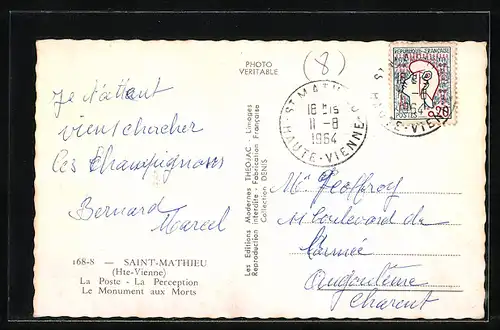 PHOTO
VERITABLE
(8)
REPUBLIQUE FRANÇAISE
POSTES
0,20
ST MATHIEU
18 H15
11-8
1964
HAUTE-VIENNE
1964
HAUTE-VIENNE
Je t'attent
vient chercher
les champignons
Bernard
Marcel
168-8 — SAINT-MATHIEU
(Hte-Vienne)
La Poste - La Perception
Le Monument aux Morts
Les Editions Modernes THEOJAC - Limoges
Reproduction interdite - Fabrication Française
Collection DENIS
Mr Geoffroy
Boulevard de
l'armée
Angoulème
Charent